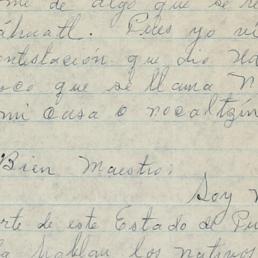 me de algo que se re
áhuatl. Pues yo vi
ontestación que dio Na
oco que se llama N
mi casa o nocaltzin
Bien Maestro:
Soy n
rte de este Estado de Pu
la hablan los nativos